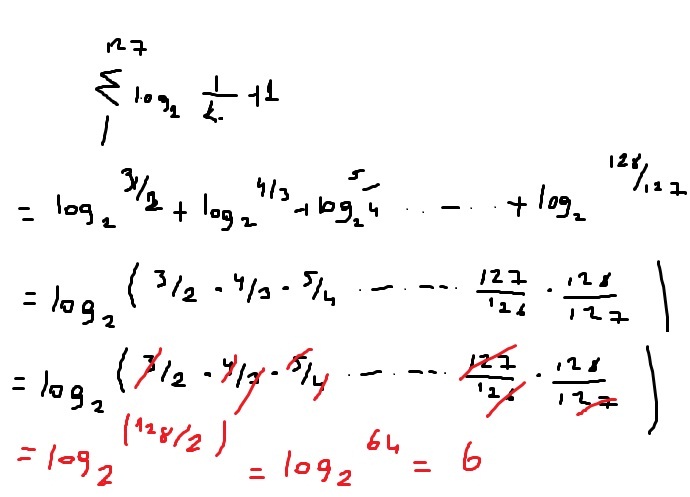 127
∑ log₂ 1/k + 1
1
= log₂ 3/2 + log₂ 4/3 + log₂ 5/4 ..-- -.. + log₂ 128/127
= log₂ ( 3/2 · 4/3 · 5/4 ·-- --·· 127/126 · 128/127 )
= log₂ ( 3/2 · 4/3 · 5/4 ·-- --·· 127/126 · 128/127 )
= log₂ (128/2) = log₂ 64 = 6